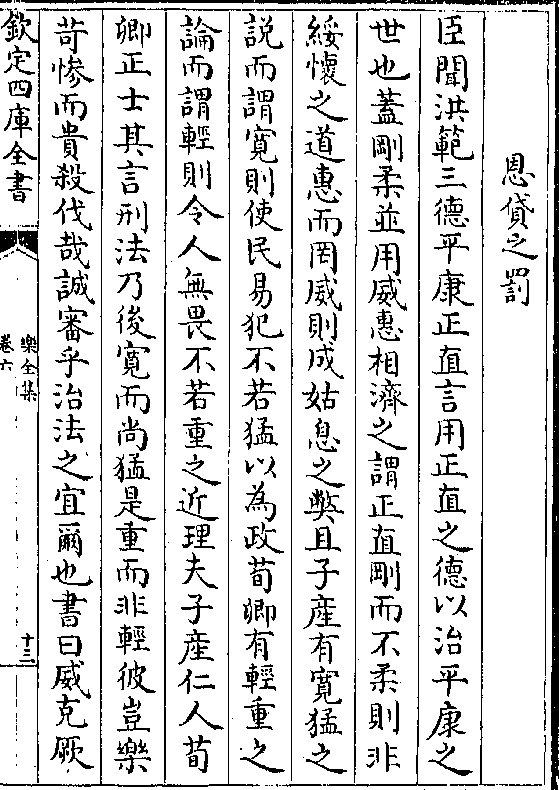 恩貸之罰
臣聞洪範三德平康正直言用正直之德以治平康之
世也蓋剛柔並用威惠相濟之謂正直剛而不柔則非
綏懷之道惠而罔威則成姑息之弊且子產有寛猛之
説而謂寛則使民易犯不若猛以為政荀卿有輕重之
論而謂輕則令人無畏不若重之近理夫子產仁人荀
卿正士其言刑法乃後寛而尚猛是重而非輕彼豈樂
苛慘而貴殺伐哉誠審乎治法之宜爾也書曰威克厥
欽定四庫全書
樂全集
卷六
十三